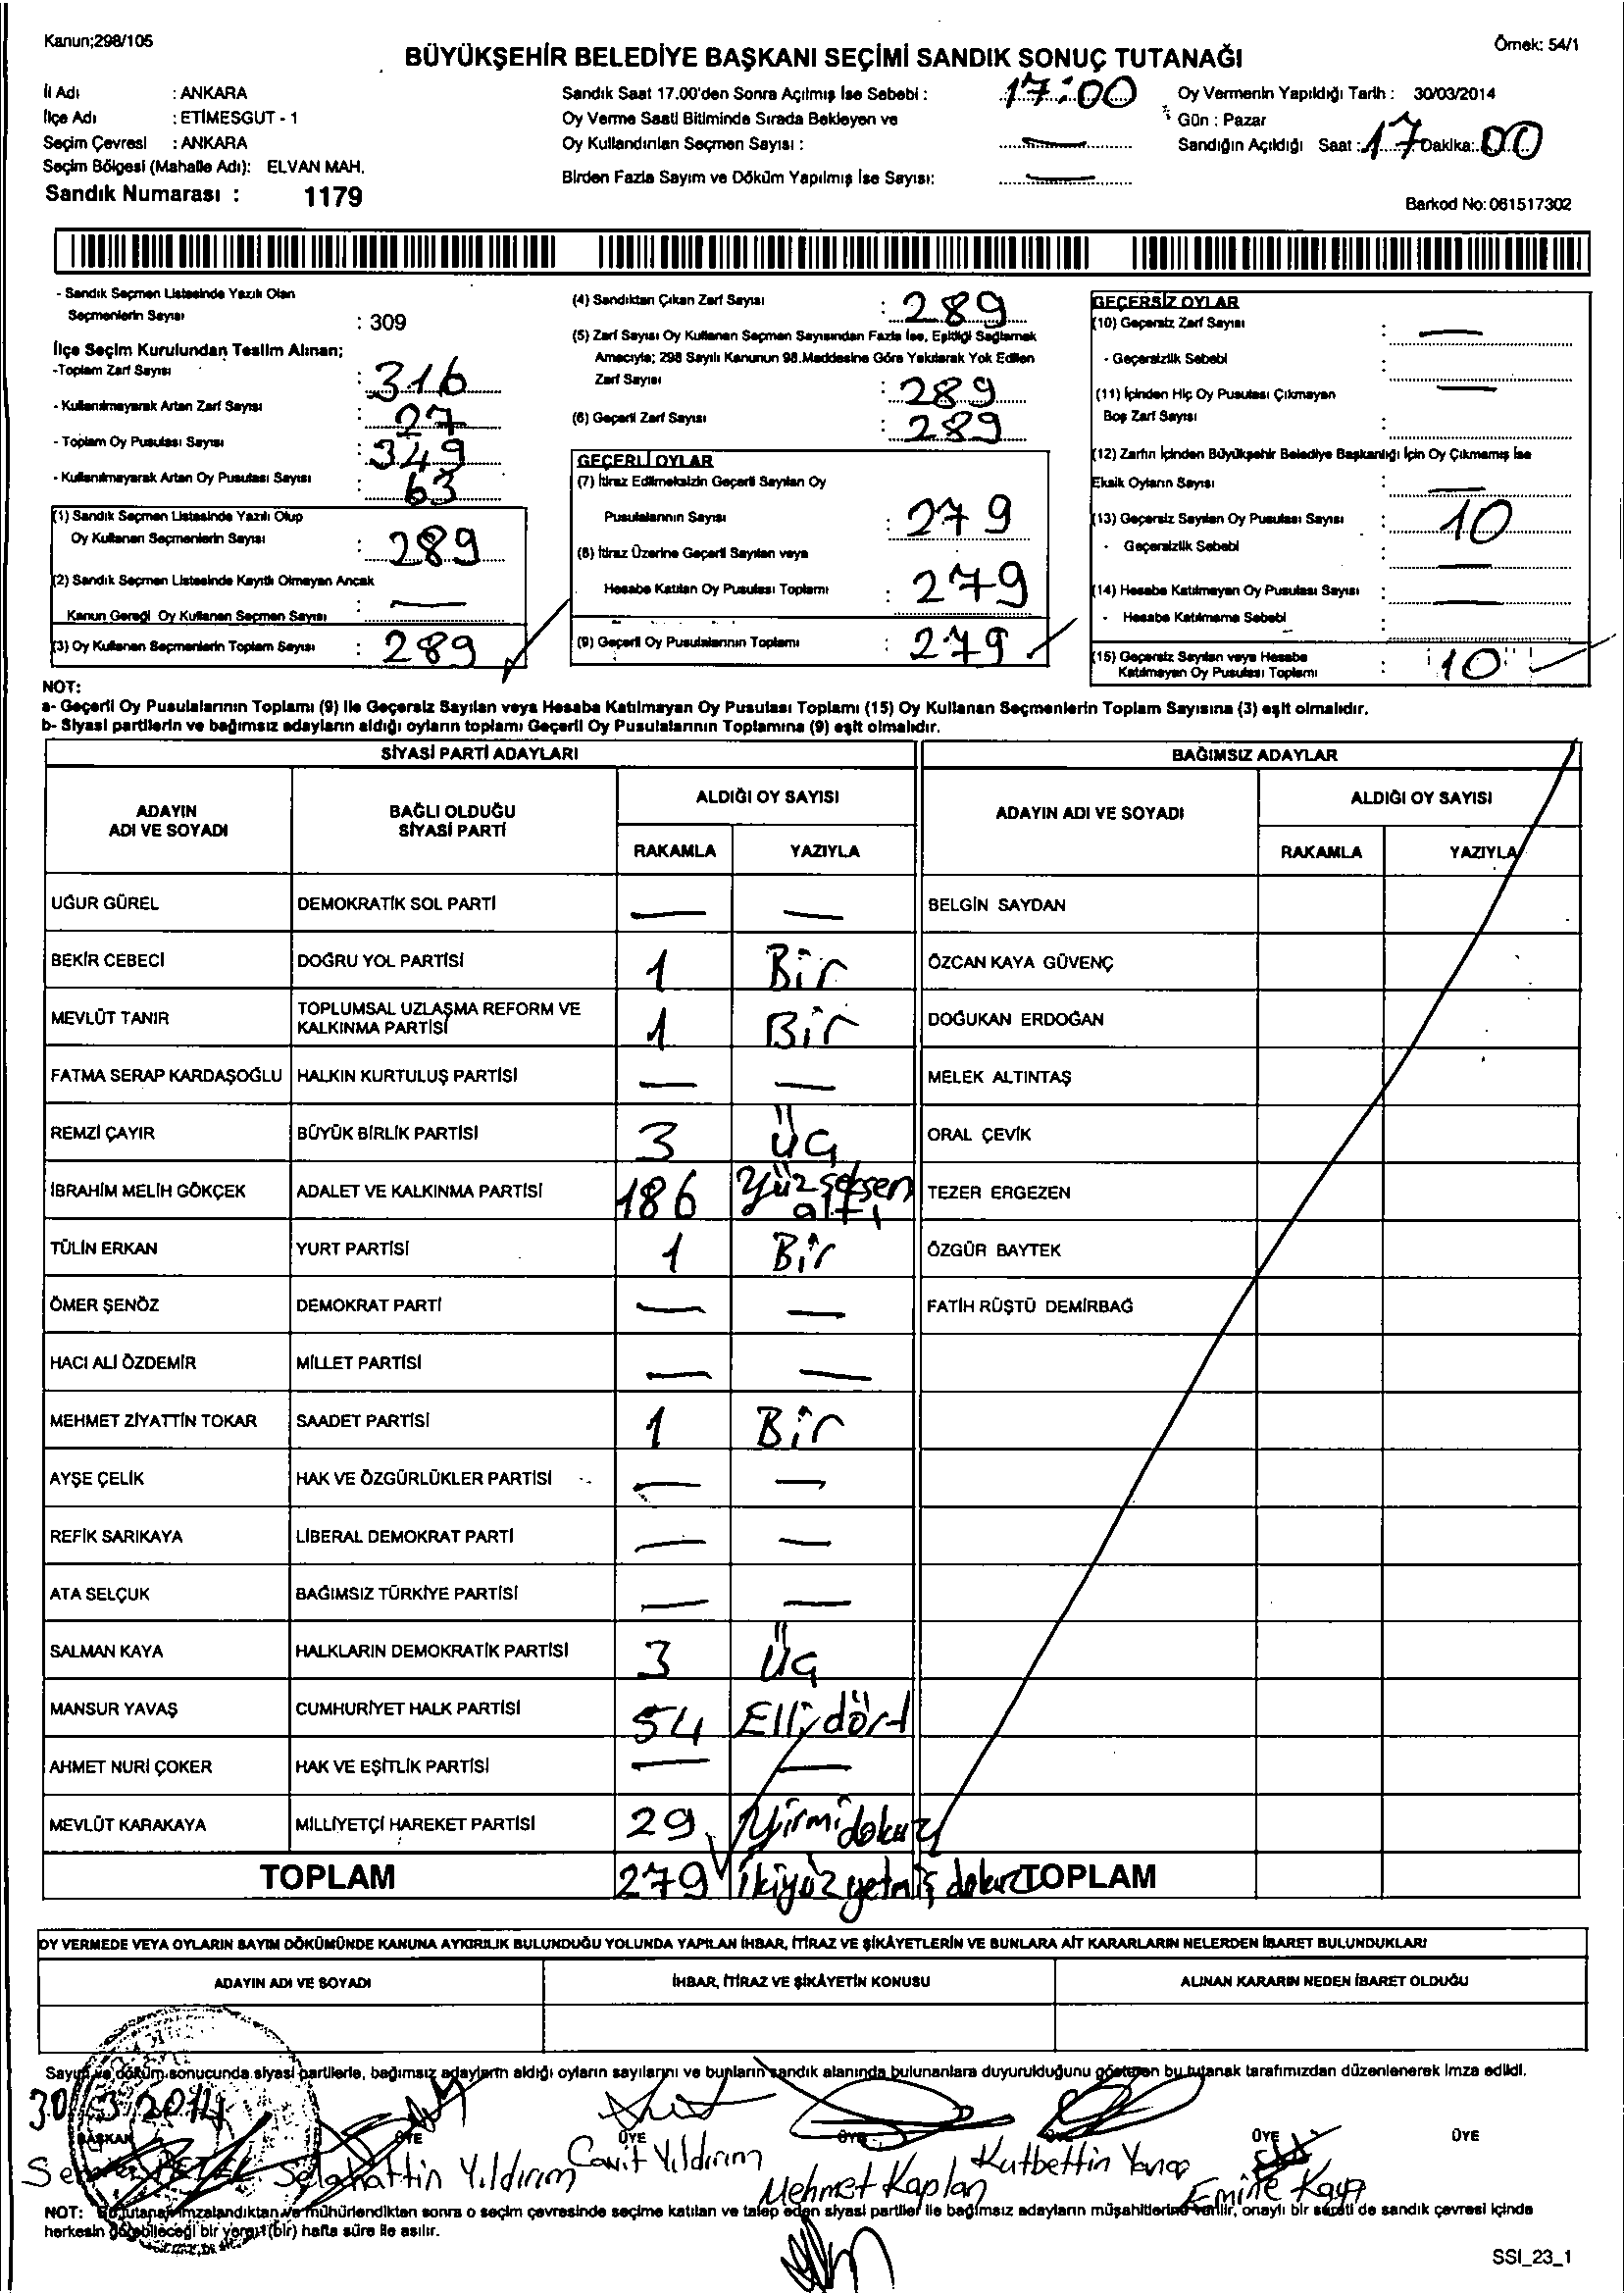 Kanun;298/105
Örnek: 54/1
BÜYÜKŞEHİR BELEDİYE BAŞKANI SEÇİMİ SANDIK SONUÇ TUTANAĞI
İl Adı : ANKARA
İlçe Adı : ETİMESGUT - 1
Seçim Çevresi : ANKARA
Seçim Bölgesi (Mahalle Adı): ELVAN MAH.
Sandık Numarası : 1179
Sandık Saat 17.00'den Sonra Açılmış İse Sebebi : 17:00
Oy Verme Saati Bitiminde Sırada Bekleyen ve
Oy Kullandırılan Seçmen Sayısı : —
Birden Fazla Sayım ve Döküm Yapılmış İse Sayısı: —
Oy Vermenin Yapıldığı Tarih : 30/03/2014
Gün : Pazar
Sandığın Açıldığı Saat : 17 Dakika: 00
Barkod No: 061517302
- Sandık Seçmen Listesinde Yazılı Olan
Seçmenlerin Sayısı : 309
İlçe Seçim Kurulundan Teslim Alınan;
-Toplam Zarf Sayısı : 316
- Kullanılmayarak Artan Zarf Sayısı : 27
- Toplam Oy Pusulası Sayısı : 349
- Kullanılmayarak Artan Oy Pusulası Sayısı : 63
(1) Sandık Seçmen Listesinde Yazılı Olup
Oy Kullanan Seçmenlerin Sayısı : 289
(2) Sandık Seçmen Listesinde Kayıtlı Olmayan Ancak
Kanun Gereği Oy Kullanan Seçmen Sayısı : —
(3) Oy Kullanan Seçmenlerin Toplam Sayısı : 289
(4) Sandıktan Çıkan Zarf Sayısı : 289
(5) Zarf Sayısı Oy Kullanan Seçmen Sayısından Fazla İse, Eşitliği Sağlamak
Amacıyla; 298 Sayılı Kanunun 98.Maddesine Göre Yakılarak Yok Edilen
Zarf Sayısı : 289
(6) Geçerli Zarf Sayısı : 289
GEÇERLİ OYLAR
(7) İtiraz Edilmeksizin Geçerli Sayılan Oy
Pusulalarının Sayısı : 279
(8) İtiraz Üzerine Geçerli Sayılan veya
Hesaba Katılan Oy Pusulası Toplamı : 279
(9) Geçerli Oy Pusulalarının Toplamı : 279
GEÇERSİZ OYLAR
(10) Geçersiz Zarf Sayısı : —
- Geçersizlik Sebebi :
(11) İçinden Hiç Oy Pusulası Çıkmayan —
Boş Zarf Sayısı :
(12) Zarfın İçinden Büyükşehir Belediye Başkanlığı İçin Oy Çıkmamış İse
Eksik Oyların Sayısı : —
(13) Geçersiz Sayılan Oy Pusulası Sayısı : 10
- Geçersizlik Sebebi : —
(14) Hesaba Katılmayan Oy Pusulası Sayısı : —
- Hesaba Katılmama Sebebi :
(15) Geçersiz Sayılan veya Hesaba
Katılmayan Oy Pusulası Toplamı : 10
NOT:
a- Geçerli Oy Pusulalarının Toplamı (9) ile Geçersiz Sayılan veya Hesaba Katılmayan Oy Pusulası Toplamı (15) Oy Kullanan Seçmenlerin Toplam Sayısına (3) eşit olmalıdır.
b- Siyasi partilerin ve bağımsız adayların aldığı oyların toplamı Geçerli Oy Pusulalarının Toplamına (9) eşit olmalıdır.
SİYASİ PARTİ ADAYLARI
ADAYIN ADI VE SOYADI
BAĞLI OLDUĞU SİYASİ PARTİ
ALDIĞI OY SAYISI
RAKAMLA YAZIYLA
UĞUR GÜREL DEMOKRATİK SOL PARTİ — —
BEKİR CEBECİ DOĞRU YOL PARTİSİ 1 Bir
MEVLÜT TANIR TOPLUMSAL UZLAŞMA REFORM VE KALKINMA PARTİSİ 1 Bir
FATMA SERAP KARDAŞOĞLU HALKIN KURTULUŞ PARTİSİ — —
REMZİ ÇAYIR BÜYÜK BİRLİK PARTİSİ 3 Üç
İBRAHİM MELİH GÖKÇEK ADALET VE KALKINMA PARTİSİ 186 Yüzseksen altı
TÜLİN ERKAN YURT PARTİSİ 1 Bir
ÖMER ŞENÖZ DEMOKRAT PARTİ — —
HACI ALİ ÖZDEMİR MİLLET PARTİSİ — —
MEHMET ZİYATTİN TOKAR SAADET PARTİSİ 1 Bir
AYŞE ÇELİK HAK VE ÖZGÜRLÜKLER PARTİSİ — —
REFİK SARIKAYA LİBERAL DEMOKRAT PARTİ — —
ATA SELÇUK BAĞIMSIZ TÜRKİYE PARTİSİ — —
SALMAN KAYA HALKLARIN DEMOKRATİK PARTİSİ 3 Üç
MANSUR YAVAŞ CUMHURİYET HALK PARTİSİ 54 Ellidört
AHMET NURİ ÇOKER HAK VE EŞİTLİK PARTİSİ — —
MEVLÜT KARAKAYA MİLLİYETÇİ HAREKET PARTİSİ 29 Yirmidokuz
TOPLAM 279 İkiyüzyetmişdokuz
BAĞIMSIZ ADAYLAR
ADAYIN ADI VE SOYADI
ALDIĞI OY SAYISI
RAKAMLA YAZIYLA
BELGİN SAYDAN
ÖZCAN KAYA GÜVENÇ
DOĞUKAN ERDOĞAN
MELEK ALTINTAŞ
ORAL ÇEVİK
TEZER ERGEZEN
ÖZGÜR BAYTEK
FATİH RÜŞTÜ DEMİRBAĞ
TOPLAM
OY VERMEDE VEYA OYLARIN SAYIM DÖKÜMÜNDE KANUNA AYKIRILIK BULUNDUĞU YOLUNDA YAPILAN İHBAR, İTİRAZ VE ŞİKÂYETLERİN VE BUNLARA AİT KARARLARIN NELERDEN İBARET BULUNDUKLARI
ADAYIN ADI VE SOYADI
İHBAR, İTİRAZ VE ŞİKÂYETİN KONUSU
ALINAN KARARIN NEDEN İBARET OLDUĞU
Sayım ve döküm sonucunda siyasi partilerle, bağımsız adayların aldığı oyların sayılarını ve bunların sandık alanında bulunanlara duyurulduğunu gösteren bu tutanak tarafımızdan düzenlenerek imza edildi.
30/3/2014
BAŞKAN ÜYE ÜYE ÜYE ÜYE ÜYE ÜYE
Selahattin Yıldırım
Cavit Yıldırım
Mehmet Kaplan
Kutbettin
Emine Kaya
NOT: Bu tutanak imzalandıktan ve mühürlendikten sonra o seçim çevresinde seçime katılan ve talep eden siyasi partiler ile bağımsız adayların müşahitlerine verilir, onaylı bir sureti de sandık çevresi içinde
herkesin görebileceği bir yere 1 (bir) hafta süre ile asılır.
SSİ_23_1